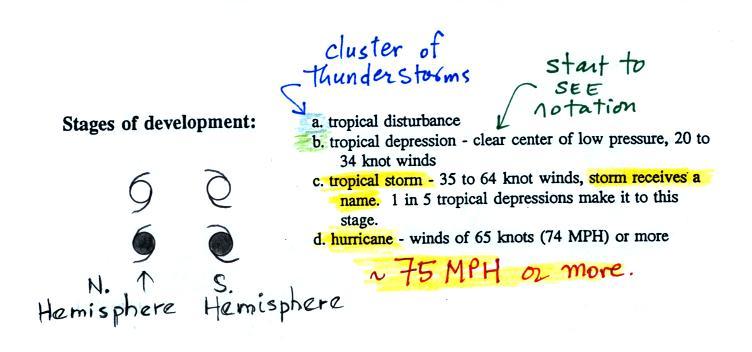 cluster of
thunderstorms
start to
SEE
notation
Stages of development:
a. tropical disturbance
b. tropical depression - clear center of low pressure, 20 to
34 knot winds
c. tropical storm - 35 to 64 knot winds, storm receives a
name. 1 in 5 tropical depressions make it to this
stage.
d. hurricane - winds of 65 knots (74 MPH) or more
~ 75 MPH or more.
N. ↑ S.
Hemisphere Hemisphere